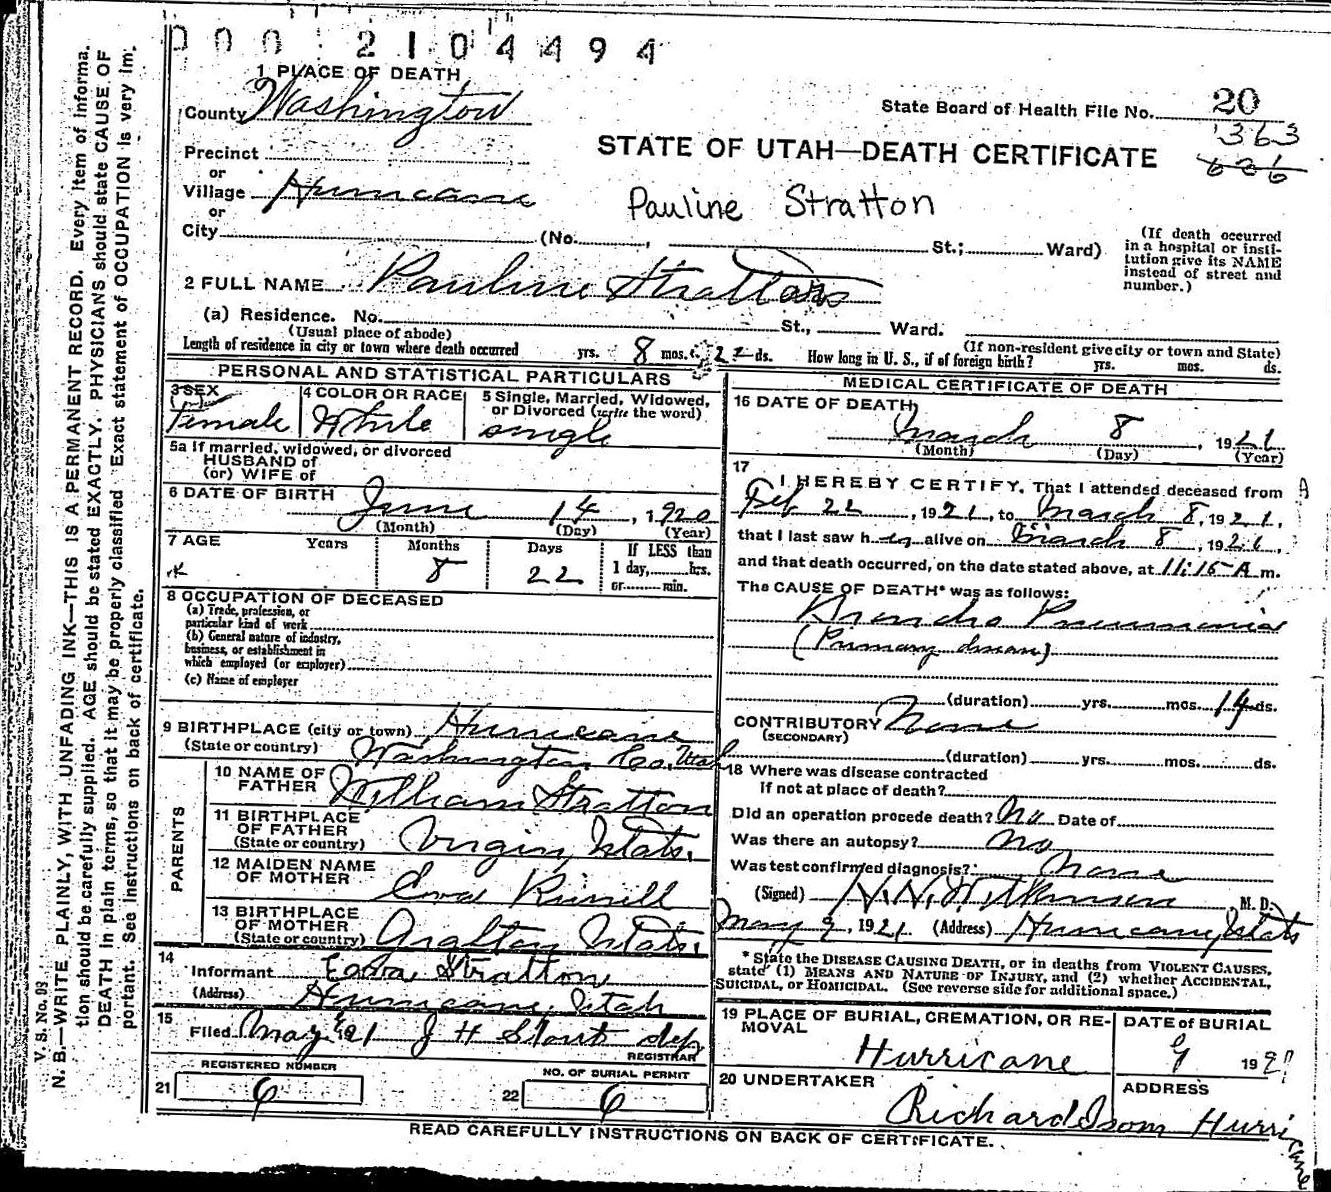 000 2104494
1 PLACE OF DEATH
County Washington
State Board of Health File No. 20
363
636
Precinct
or
Village Hurricane
or
City (No. , St.; Ward)
STATE OF UTAH—DEATH CERTIFICATE
Pauline Stratton
(If death occurred
in a hospital or insti-
tution give its NAME
instead of street and
number.)
2 FULL NAME Pauline Stratton
(a) Residence. No. St., Ward.
(Usual place of abode)
(If non-resident give city or town and State)
Length of residence in city or town where death occurred yrs. 8 mos. 22 ds. How long in U. S., if of foreign birth? yrs. mos. ds.
PERSONAL AND STATISTICAL PARTICULARS
3 SEX
Female
4 COLOR OR RACE
White
5 Single, Married, Widowed,
or Divorced (write the word)
single
5a If married, widowed, or divorced
HUSBAND of
(or) WIFE of
6 DATE OF BIRTH June 14, 1920
(Month) (Day) (Year)
7 AGE Years Months Days If LESS than
8 22 1 day, hrs.
or min.
8 OCCUPATION OF DECEASED
(a) Trade, profession, or
particular kind of work
(b) General nature of industry,
business, or establishment in
which employed (or employer)
(c) Name of employer
9 BIRTHPLACE (city or town) Hurricane
(State or country) Washington Co. Utah
PARENTS
10 NAME OF
FATHER William Stratton
11 BIRTHPLACE
OF FATHER
(State or country) Virgin, Utah.
12 MAIDEN NAME
OF MOTHER
13 BIRTHPLACE
OF MOTHER
(State or country) Utah.
14
Informant Stratton
(Address) Hurricane, Utah
15
Filed May 1921 J H Stout dep
REGISTRAR
REGISTERED NUMBER
21 6
NO. OF BURIAL PERMIT
22 6
MEDICAL CERTIFICATE OF DEATH
16 DATE OF DEATH
March 8, 1921
(Month) (Day) (Year)
17
I HEREBY CERTIFY, That I attended deceased from
Feb 22, 1921, to March 8, 1921,
that I last saw h er alive on March 8, 1921,
and that death occurred, on the date stated above, at 11:15 A m.
The CAUSE OF DEATH* was as follows:
Broncho Pneumonia
(Primary disease)
(duration) yrs. mos. 14 ds.
CONTRIBUTORY None
(SECONDARY)
(duration) yrs. mos. ds.
18 Where was disease contracted
If not at place of death?
Did an operation precede death? No Date of
Was there an autopsy? No
Was test confirmed diagnosis? None
(Signed) Wilkinson, M. D.
May 9, 1921 (Address) Hurricane, Utah
* State the DISEASE CAUSING DEATH, or in deaths from VIOLENT CAUSES,
state (1) MEANS AND NATURE OF INJURY, and (2) whether ACCIDENTAL,
SUICIDAL, or HOMICIDAL. (See reverse side for additional space.)
19 PLACE OF BURIAL, CREMATION, OR RE-
MOVAL
Hurricane
DATE of BURIAL
9 192
20 UNDERTAKER
Richard Isom
ADDRESS
Hurricane
READ CAREFULLY INSTRUCTIONS ON BACK OF CERTIFICATE.
V. S. No. 98
N. B.—WRITE PLAINLY, WITH UNFADING INK—THIS IS A PERMANENT RECORD. Every item of informa-
tion should be carefully supplied. AGE should be stated EXACTLY. PHYSICIANS should state CAUSE OF
DEATH in plain terms, so that it may be properly classified. Exact statement of OCCUPATION is very im-
portant. See instructions on back of certificate.